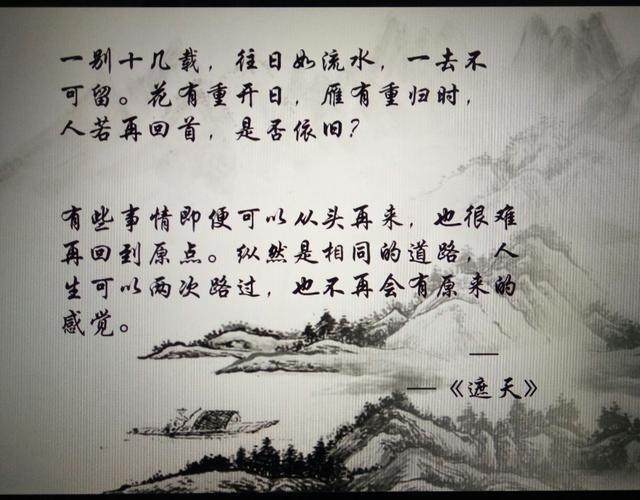 一别十几载，往日如流水，一去不
可留。花有重开日，雁有重归时，
人若再回首，是否依旧？
有些事情即便可以从头再来，也很难
再回到原点。纵然是相同的道路，人
生可以两次路过，也不再会有原来的
感觉。
—
—《遮天》